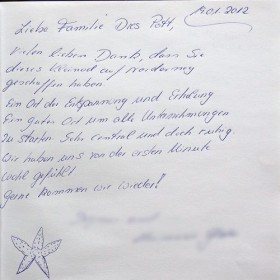 19.01.2012
Liebe Familie Dres Pott,
Vielen lieben Dank, dass Sie
dieses Kleinod auf Norderney
geschaffen haben
Ein Ort der Entspannung und Erholung
Ein guter Ort um alle Unternehmungen
zu starten. Sehr central und doch ruhig
Wir haben uns von der ersten Minute
wohl gefühlt
Gerne kommen wir wieder!